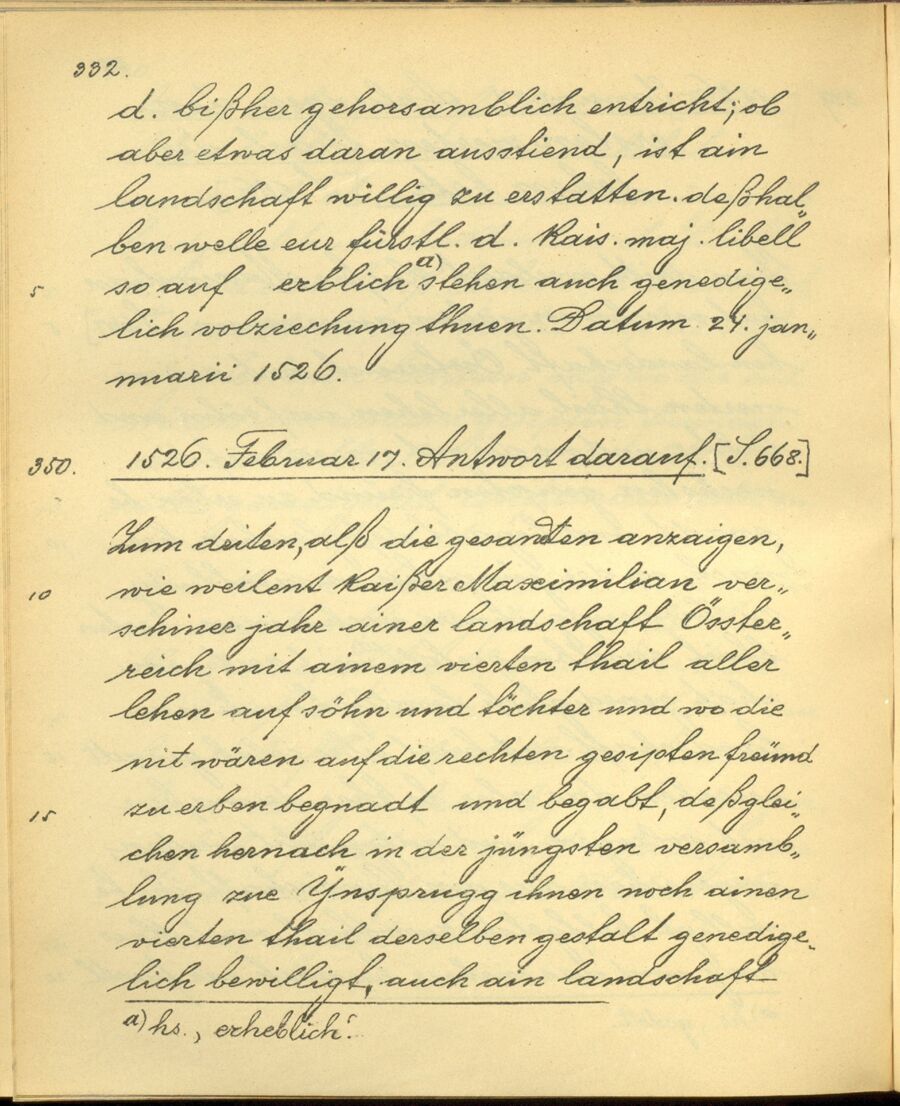 332.
d. bißher gehorsamblich entricht; ob
aber etwas daran ausstiend, ist ain
landschaft willig zu erstatten. deßhal„
ben welle eur fürstl. d. Kais. maj. libell
5 so auf erblich a) stehen auch genedige„
lich volziechung thuen. Datum 24. jan„
nuarii 1526.
350. 1526. Februar 17. Antwort darauf. [S. 668.]
Zum deiten, alß die gesandten anzaigen,
10 wie weilent Kaißer Maximilian ver„
schiner jahr ainer landschaft Össter„
reich mit ainem vierten thail aller
lehen auf söhn und töchter und wo die
nit wären auf die rechten gesipten freünd
15 zu erben begnadt und begabt, deßglei„
chen hernach in der jüngsten versamb„
lung zue Ÿnsprugg ihnen noch ainen
vierten thail derselben gestalt genedige„
lich bewilligt, auch ain landschaft
a) hs. „erheblich“.